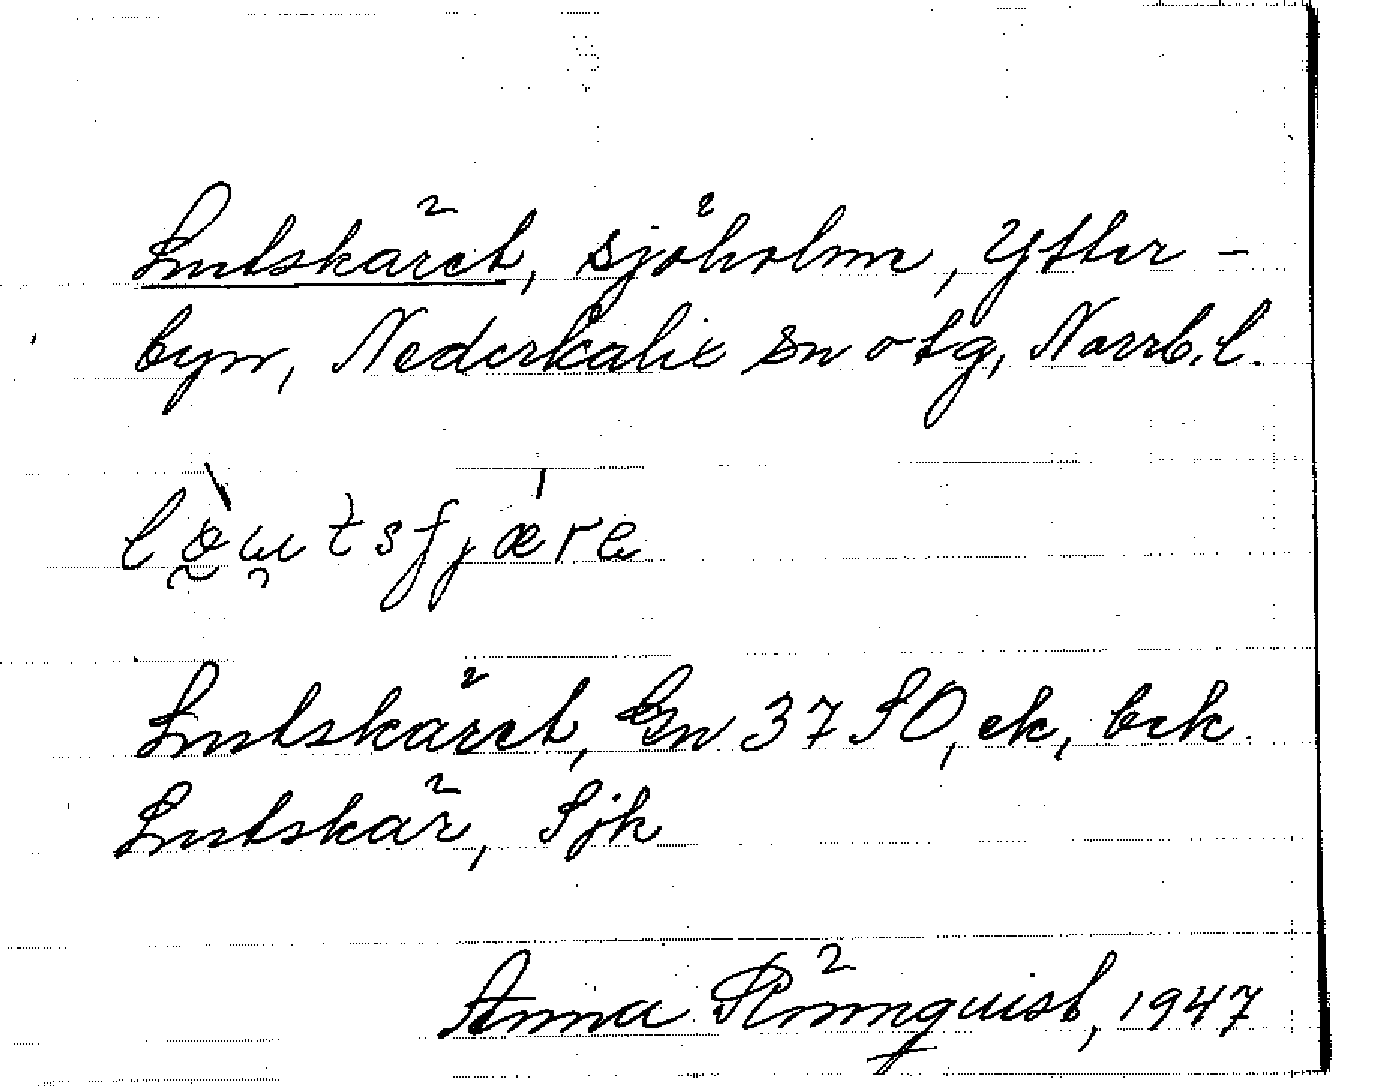 Lutskäret, sjöholm, Ytter-
byn, Nederkalix sn o tg, Norrb. l.
Lutskäret, Gn 37 SO, ek, bek
Lutskär, Sjk
Anna Rönnquist, 1947